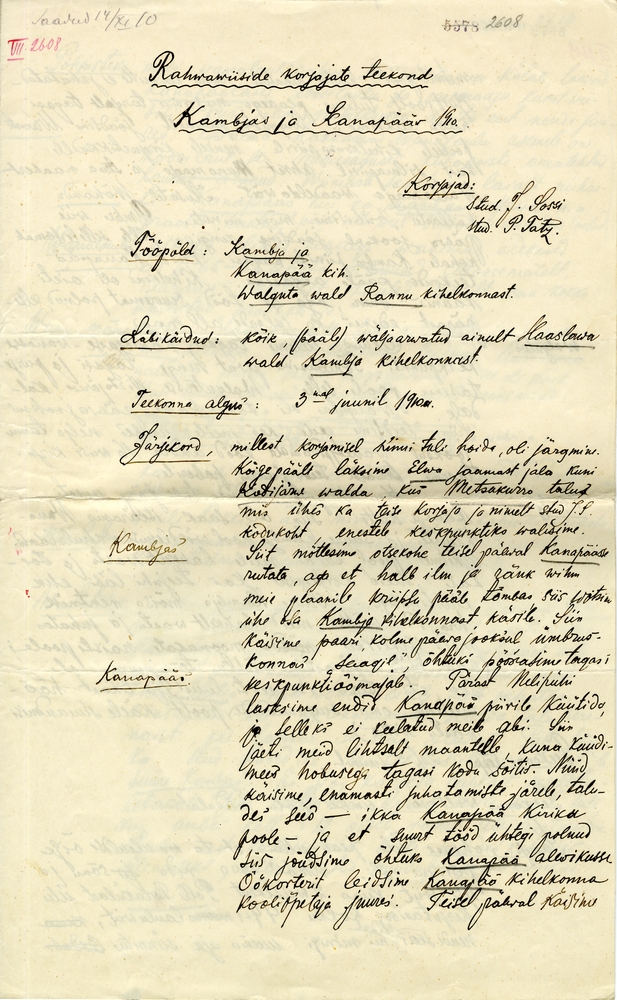 Saadud 14/XI 10
5578 2608
VII 2608
Rahwawiiside korjajate teekond
Kambjas ja Kanapääs 1910.
Korjajad:
stud. J. Sossi
stud. P. Tatz.
Tööpõld: Kambja ja
Kanapää kih.
Walguta wald Rannu kihelkonnast.
Läbikäidud: kõik, (pääle) wäljaarwatud ainult Haaslawa
wald Kambja kihelkonnast.
Teekonna algus: 3mal juunil 1910.
Järjekord, millest korjamisel kinni tuli hoida, oli järgmine.
Kõige päält läksime Elwa jaamast jala kuni
Kodijärwe walda, kus Metsakurro talus
mis ühes ka teise korjaja ja nimelt stud J. S.
kodukoht, enestele keskpunktiks walisime.
Kambjas
Siit mõtlesime otsekohe teisel päewal Kanapäässe
rutata, aga et halb ilm ja wihm
meie plaanile kriipsu pääle tõmbas siis wõtsime
ühe osa Kambja kihelkonnast käsile. Siin
käisime paari, kolme päewa jooksul ümbrus-
konnas "saagil", õhtuks pöörasime tagasi
Kanapääs
keskpunkti öömajale. Pärast Nelipühi
lasksime endid Kanapää piirile küütida,
ja selleks ei keelatud meile abi. Siin
jäeti meid lihtsalt maanteele, kuna küüdi-
mees hobusega tagasi kodu sõitis. Nüüd
käisime, enamasti juhatamiste järele, talu-
des sees — ikka Kanapää kiriku
poole — ja et suurt tööd ühtegi polnud
siis jõudsime õhtuks Kanapää alewikusse
Öökorterit leidsime Kanapää kihelkonna
kooliõpetaja juures. Teisel päewal käisime